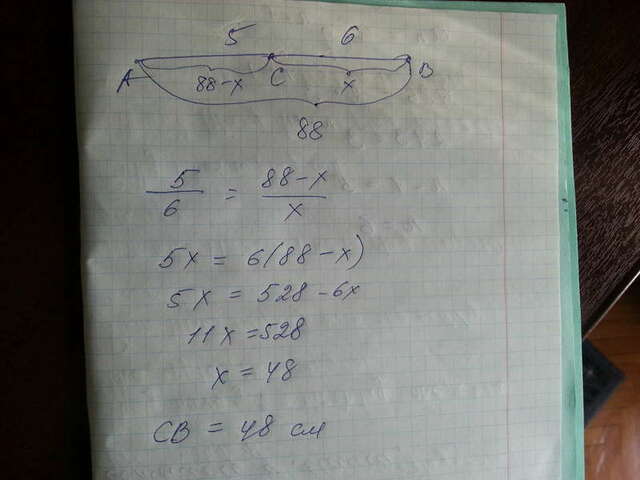 5 6
A 88-x C x B
88
5/6 = 88-x/x
5x = 6(88-x)
5x = 528-6x
11x=528
x = 48
CB = 48 см